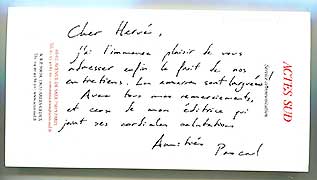 Cher Hervé,
j'ai l'immense plaisir de vous
adresser enfin le fruit de nos
entretiens. Les amarres sont larguées !
Avec tous mes remerciements,
et ceux de mon éditrice qui
joint ses cordiales salutations
Amitiés
Pascal
ACTES SUD
Service Communication